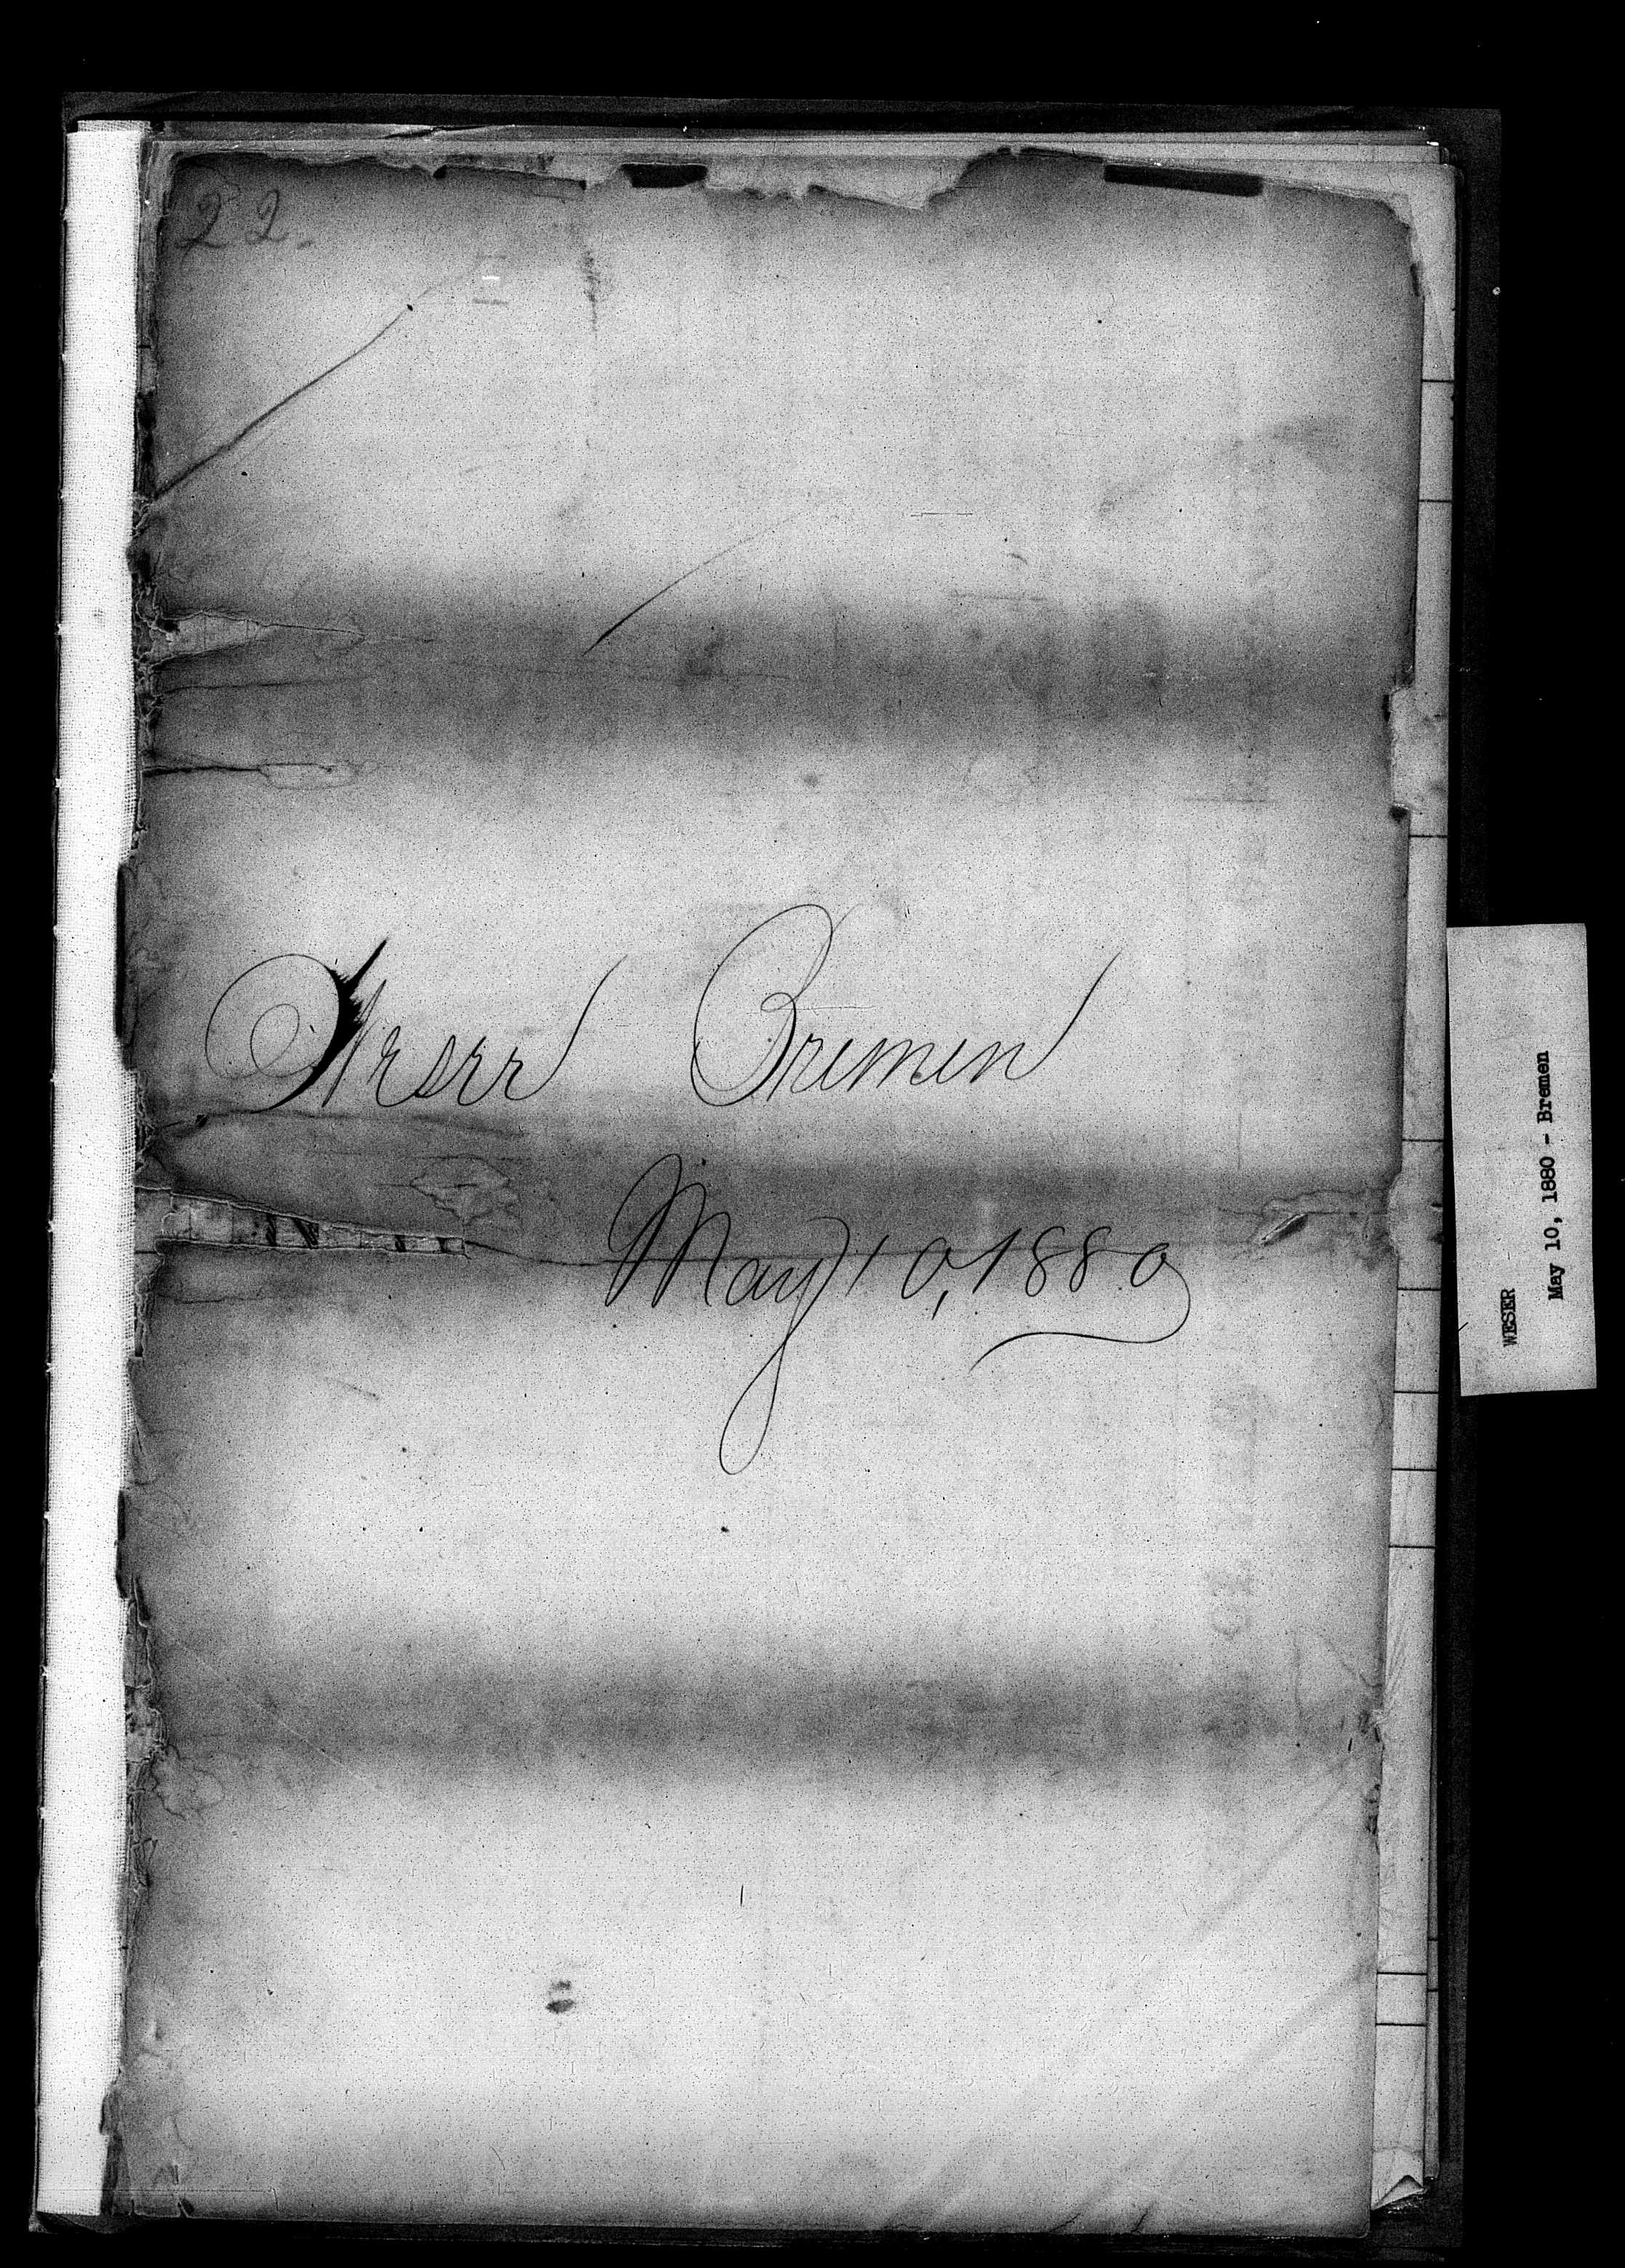 22.
Weser Bremen
May 10, 1880
WESER
May 10, 1880 - Bremen